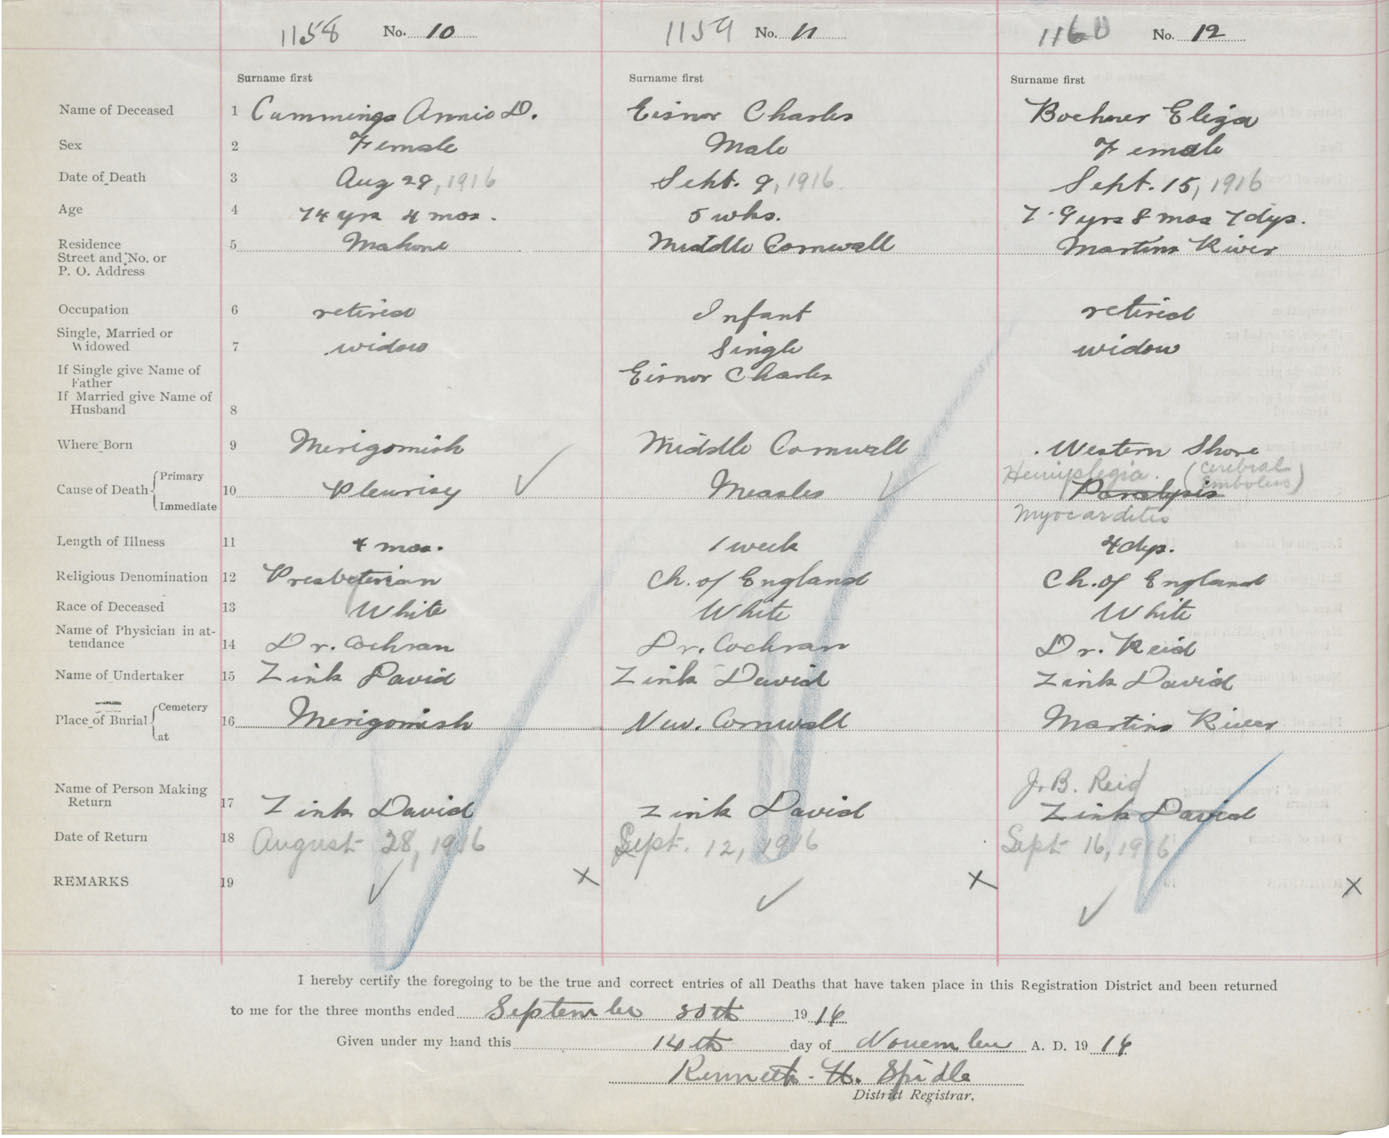 1158 No. 10 1159 No. 11 1160 No. 12
Surname first Surname first Surname first
Name of Deceased 1 Cummings Annie D. Eisnor Charles Boehner Eliza
Sex 2 Female Male Female
Date of Death 3 Aug 29, 1916 Sept. 9, 1916 Sept. 15, 1916
Age 4 74 yrs 4 mos. 5 wks. 79 yrs 8 mos 7 dys.
Residence 5 Mahone Middle Cornwall Martins River
Street and No. or
P. O. Address
Occupation 6 retired Infant retired
Single, Married or
Widowed 7 widow Single widow
If Single give Name of
Father Eisnor Charles
If Married give Name of
Husband 8
Where Born 9 Merigomish Middle Cornwall Western Shore
Cause of Death Primary Immediate 10 Pleurisy Measles Hemiplegia (Cerebral Embolus) Paralysis
Myocarditis
Length of Illness 11 4 mos. 1 week 4 dys.
Religious Denomination 12 Presbeterian Ch. of England Ch. of England
Race of Deceased 13 White White White
Name of Physician in at-
tendance 14 Dr. Cochran Dr. Cochran Dr. Reid
Name of Undertaker 15 Zink David Zink David Zink David
Place of Burial Cemetery at 16 Merigomish New. Cornwall Martins River
Name of Person Making J. B. Reid
Return 17 Zink David Zink David Zink David
Date of Return 18 August 28, 1916 Sept. 12, 1916 Sept 16, 1916
REMARKS 19 x x x
I hereby certify the foregoing to be the true and correct entries of all Deaths that have taken place in this Registration District and been returned
to me for the three months ended September 30th 1916
Given under my hand this 14th day of November A. D. 1916
Kenneth H. Spidle
District Registrar.